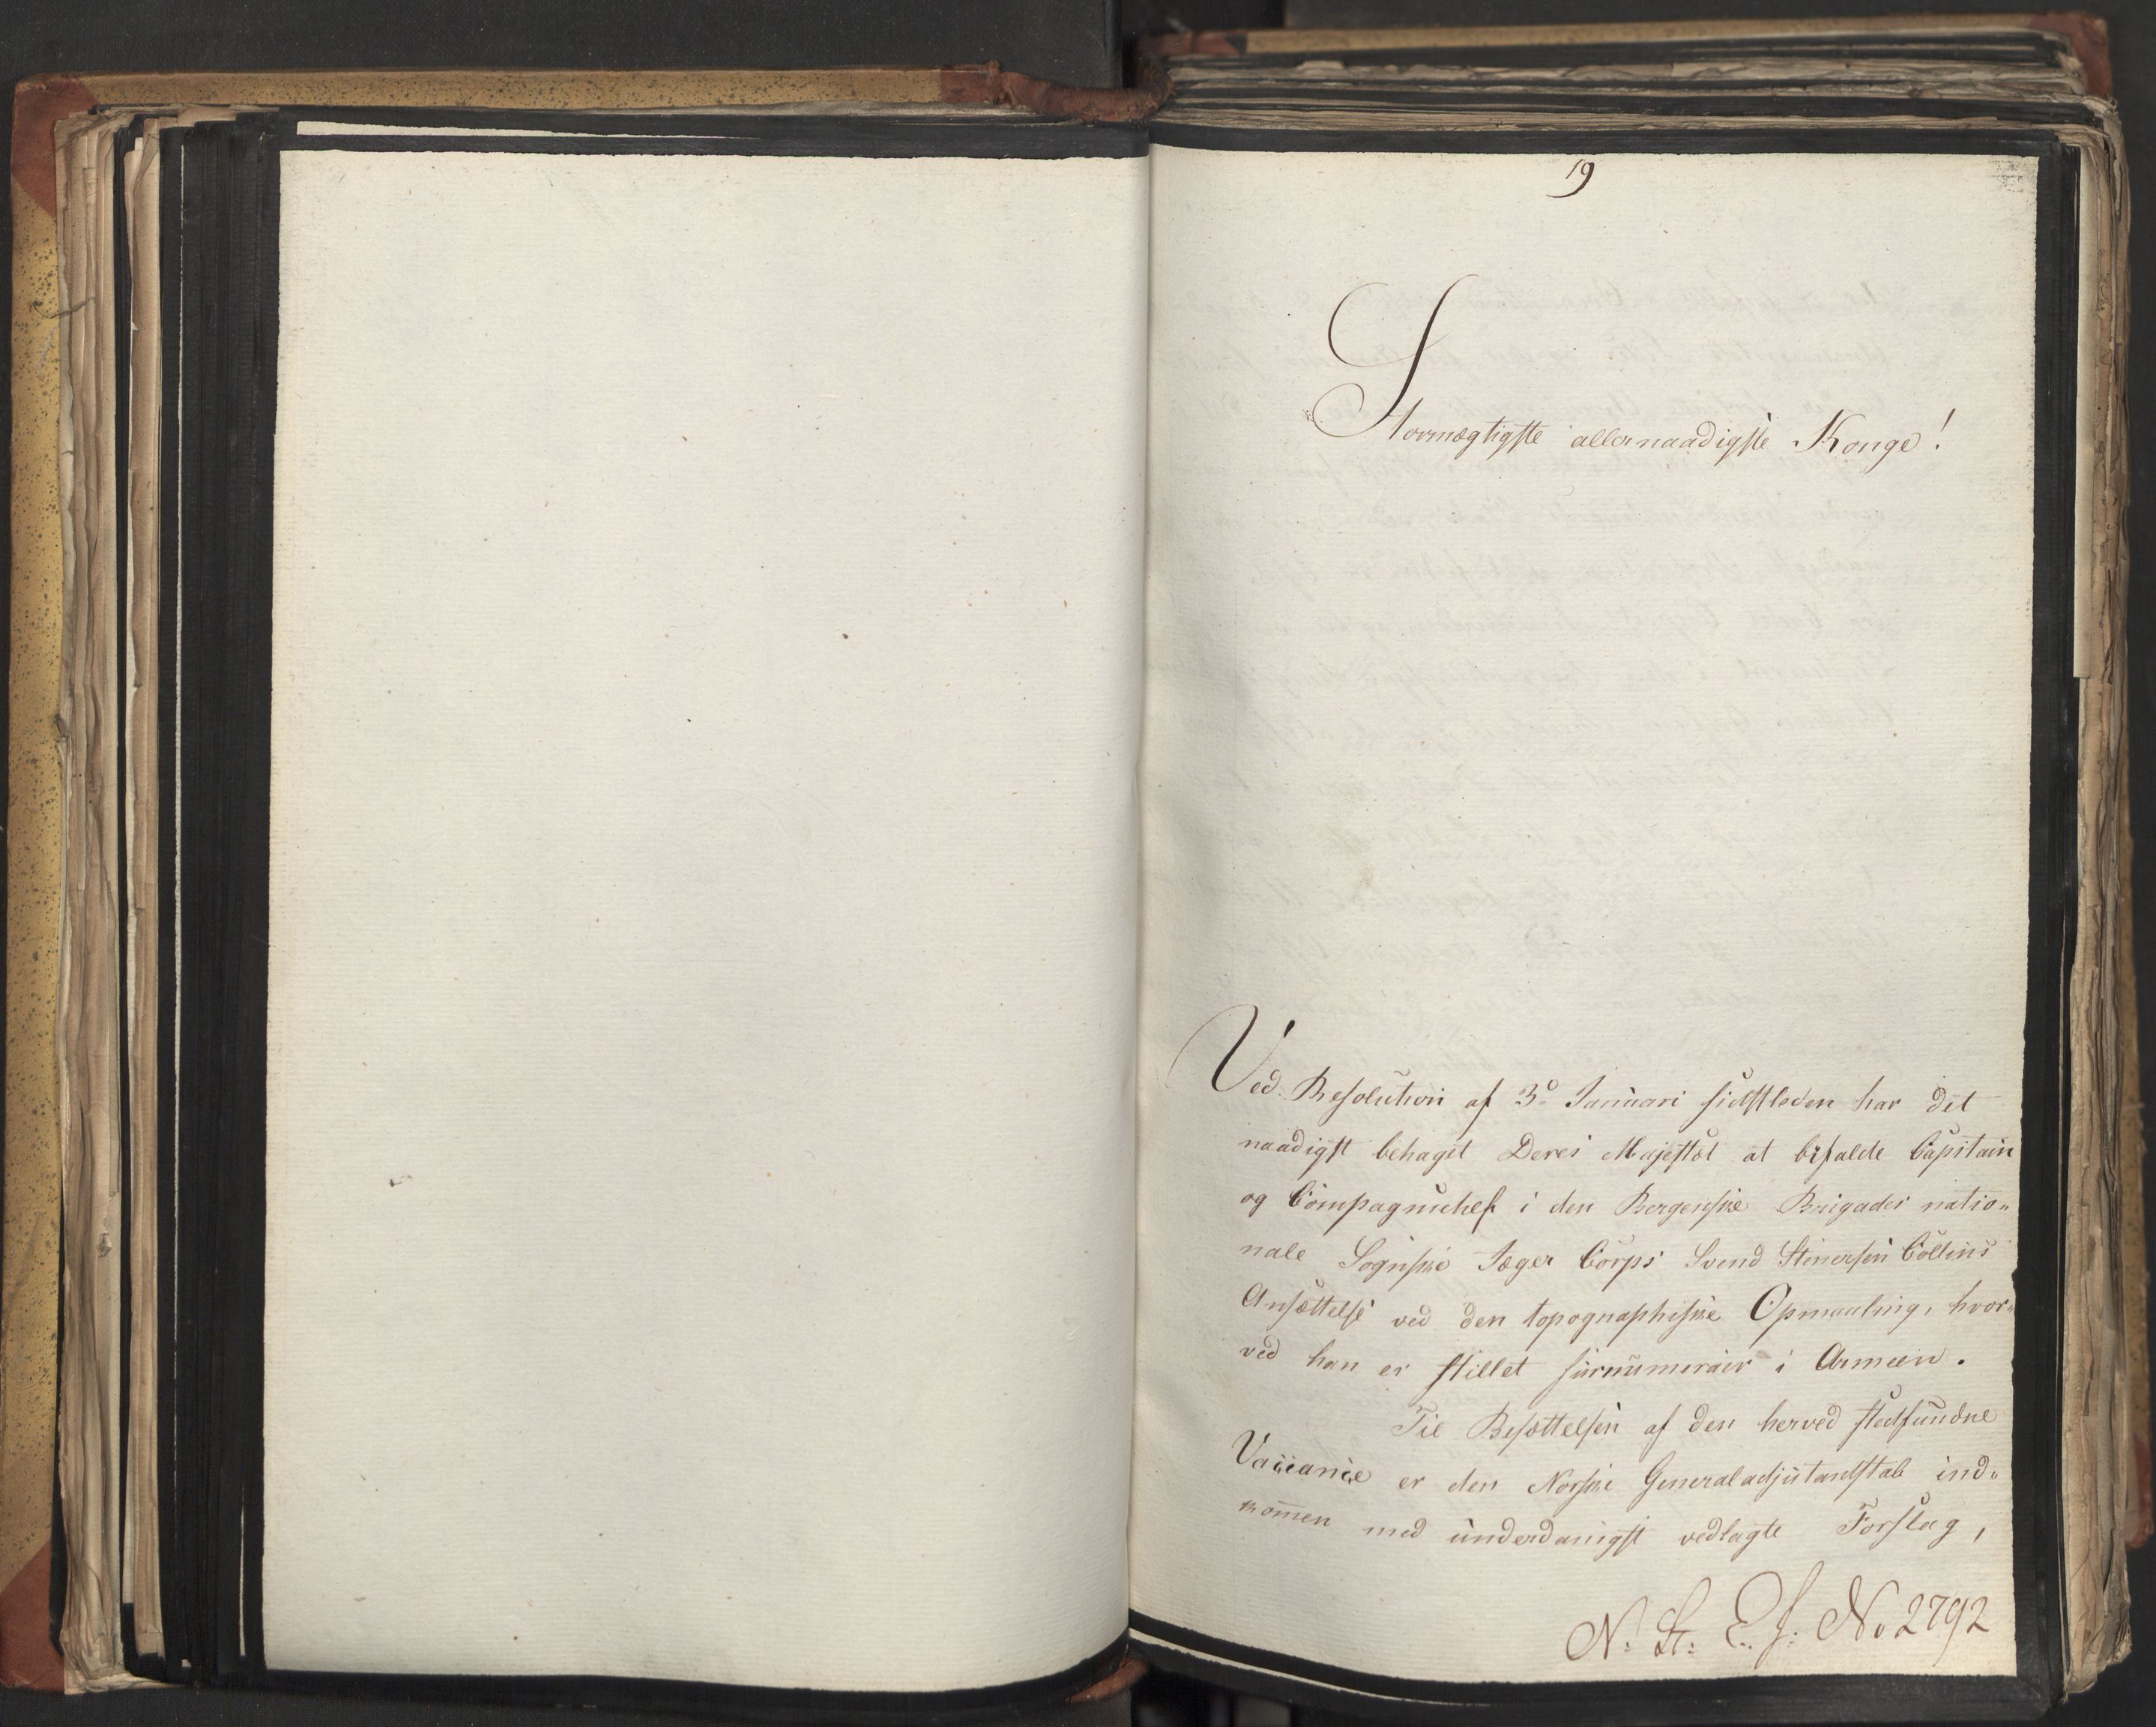 19
Stormægtigste allernaadigste Konge!
Ved Resolution af 3d Januari sidstleden har det
naadigst behaget Deres Majestæt at bifalde Capitain
og Compagniechef i den Bergenske Brigades natio„
nale Sognske Jæger Corps Svend Stenersen Collins
Ansættelse ved den topographiske Opmaaling, hvor„
ved han er stillet surnumerair i Armeen.
Til Besættelsen af den herved stedfundne
Vacance er den Norske Generaladjutantstab ind„
kom̅en med underdanigst vedlagte Forslag,
N: St: E: J: No 2792